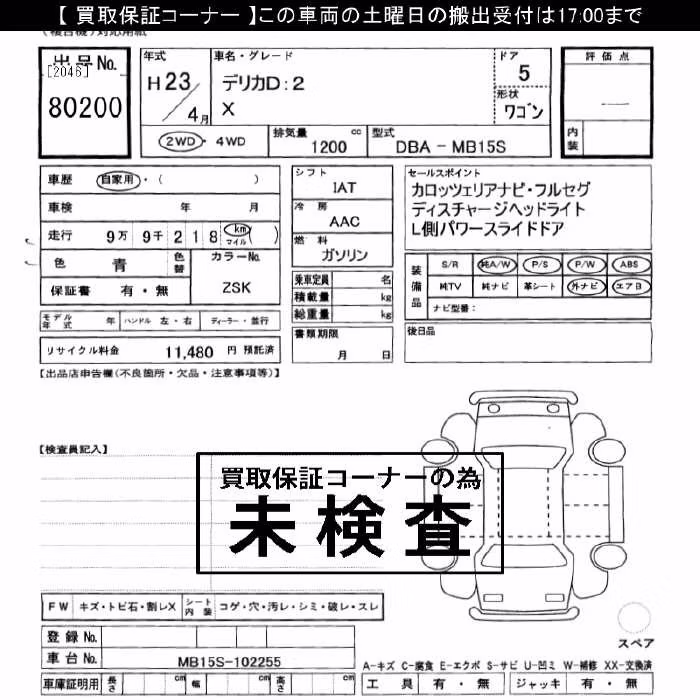 【 買取保証コーナー 】この車両の土曜日の搬出受付は17:00まで
(複合機)対応用紙
出品No.
[2046]
80200
年式
H 23 / 4月
車名・グレード
デリカD:2
X
ドア
5
形状
ワゴン
評価点
内装
2WD・4WD
排気量 cc
1200
型式
DBA - MB15S
車歴 自家用・( )
車検 年 月
走行 9万 9千 218 (km マイル)
色 青 色替
カラーNo.
ZSK
保証書 有・無
シフト
IAT
冷房
AAC
燃料
ガソリン
乗車定員 名
積載量 kg
総重量 kg
書類期限
月 日
セールスポイント
カロッツェリアナビ・フルセグ
ディスチャージヘッドライト
L側パワースライドドア
装備品
S/R 純A/W P/S P/W ABS
純TV 純ナビ 革シート 外ナビ エアB
ナビ型壱:
後日品
モデル年式 年 ハンドル 左・右 ディーラー・並行
リサイクル料金 11,480 円 預託済
【出品店申告欄(不良箇所・欠品・注意事項等)】
【検査員記入】
買取保証コーナーの為
未検査
FW キズ・トビ石・割レX シート内装 コゲ・穴・汚レ・シミ・破レ・スレ
登録No.
車台No. MB15S-102255
車庫証明用 長さ cm 幅 cm 高さ cm
スペア
A-キズ C-腐食 E-エクボ S-サビ U-凹ミ W-補修 XX-交換済
工具 有・無 ジャッキ 有・無